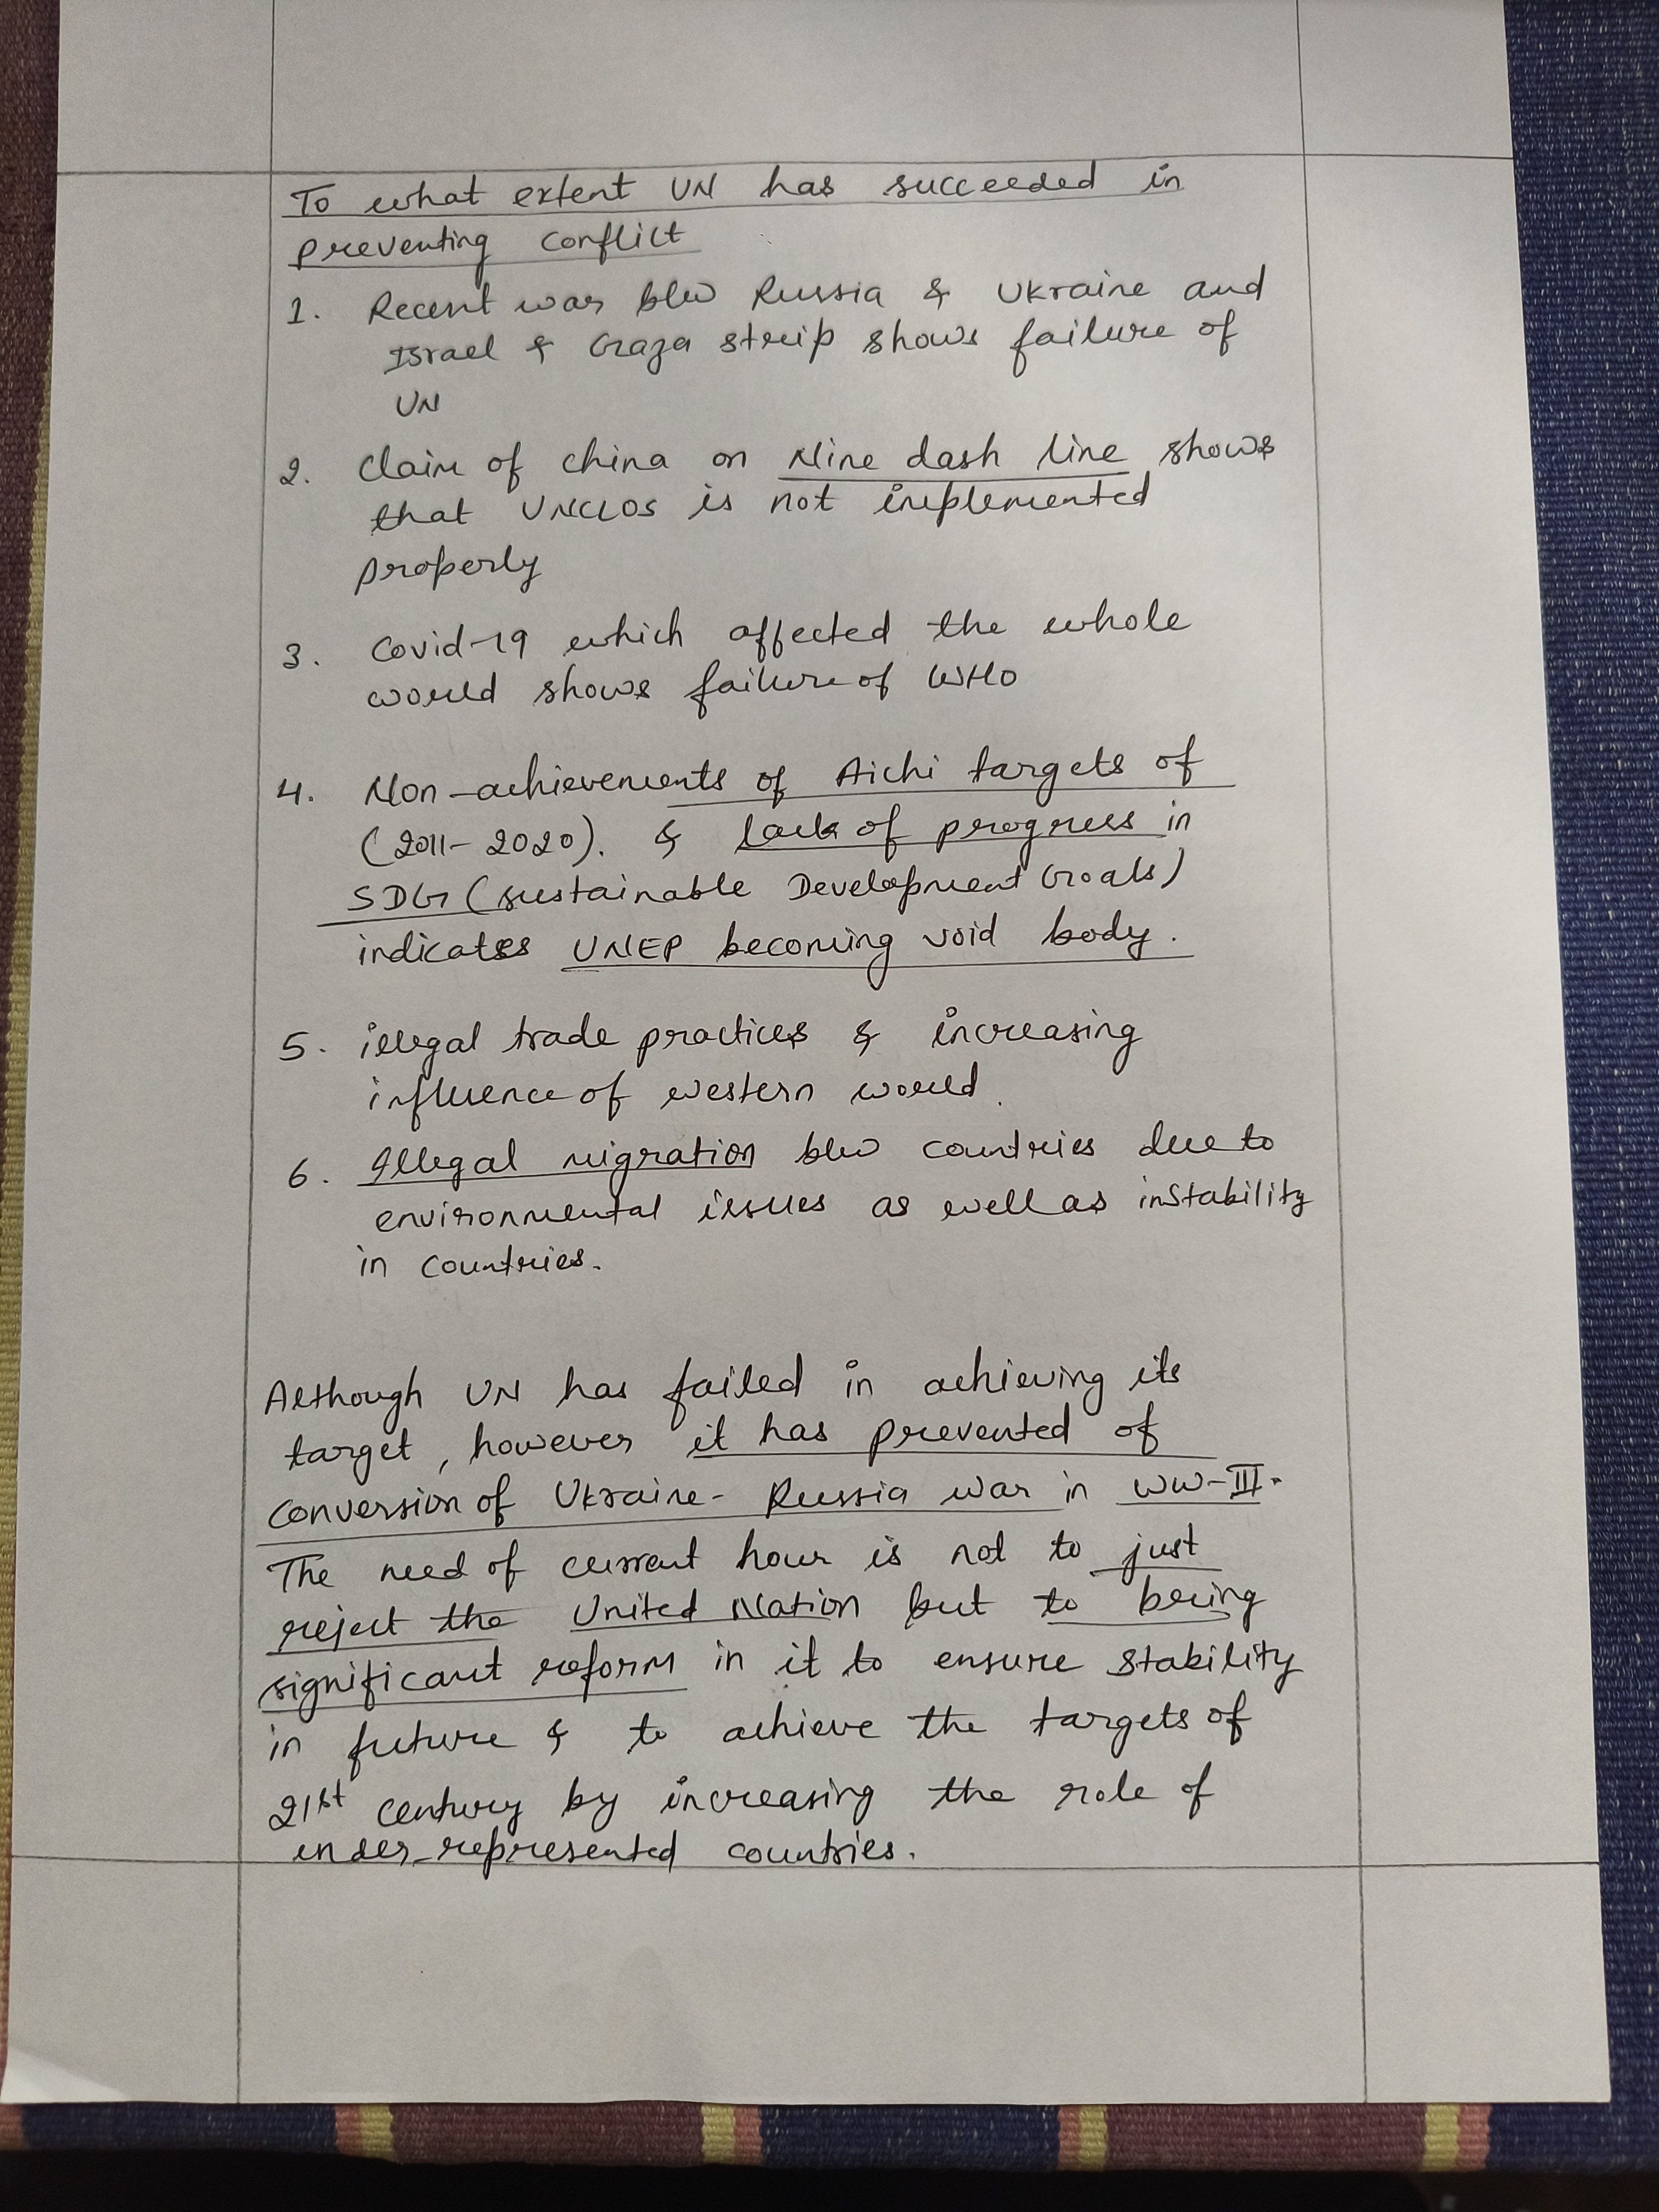 To what extent UN has succeeded in
preventing conflict
1. Recent war b/w Russia & Ukraine and
Israel & Gaza strip shows failure of
UN
2. Claim of china on Nine dash line shows
that UNCLOS is not implemented
properly
3. Covid-19 which affected the whole
world shows failure of WHO
4. Non-achievements of Aichi targets of
(2011-2020). & lack of progress in
SDG (sustainable Development Goals)
indicates UNEP becoming void body.
5. illegal trade practices & increasing
influence of western world.
6. Illegal migration b/w countries due to
environmental issues as well as instability
in countries.
Although UN has failed in achieving its
target, however it has prevented of
conversion of Ukraine-Russia war in WW-III.
The need of current hour is not to just
reject the United Nation but to bring
significant reform in it to ensure stability
in future & to achieve the targets of
21st century by increasing the role of
under-represented countries.